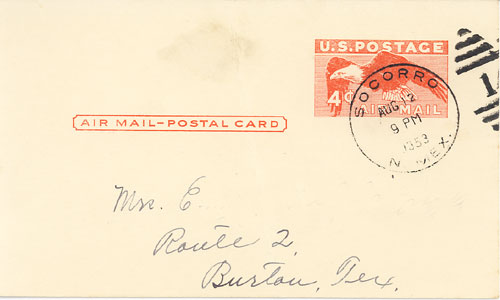 U.S. POSTAGE
4¢ AIR MAIL
SOCORRO
AUG 12
9 PM
1953
N. MEX.
1
AIR MAIL—POSTAL CARD
Mrs. E.
Route 2,
Burton, Tex.